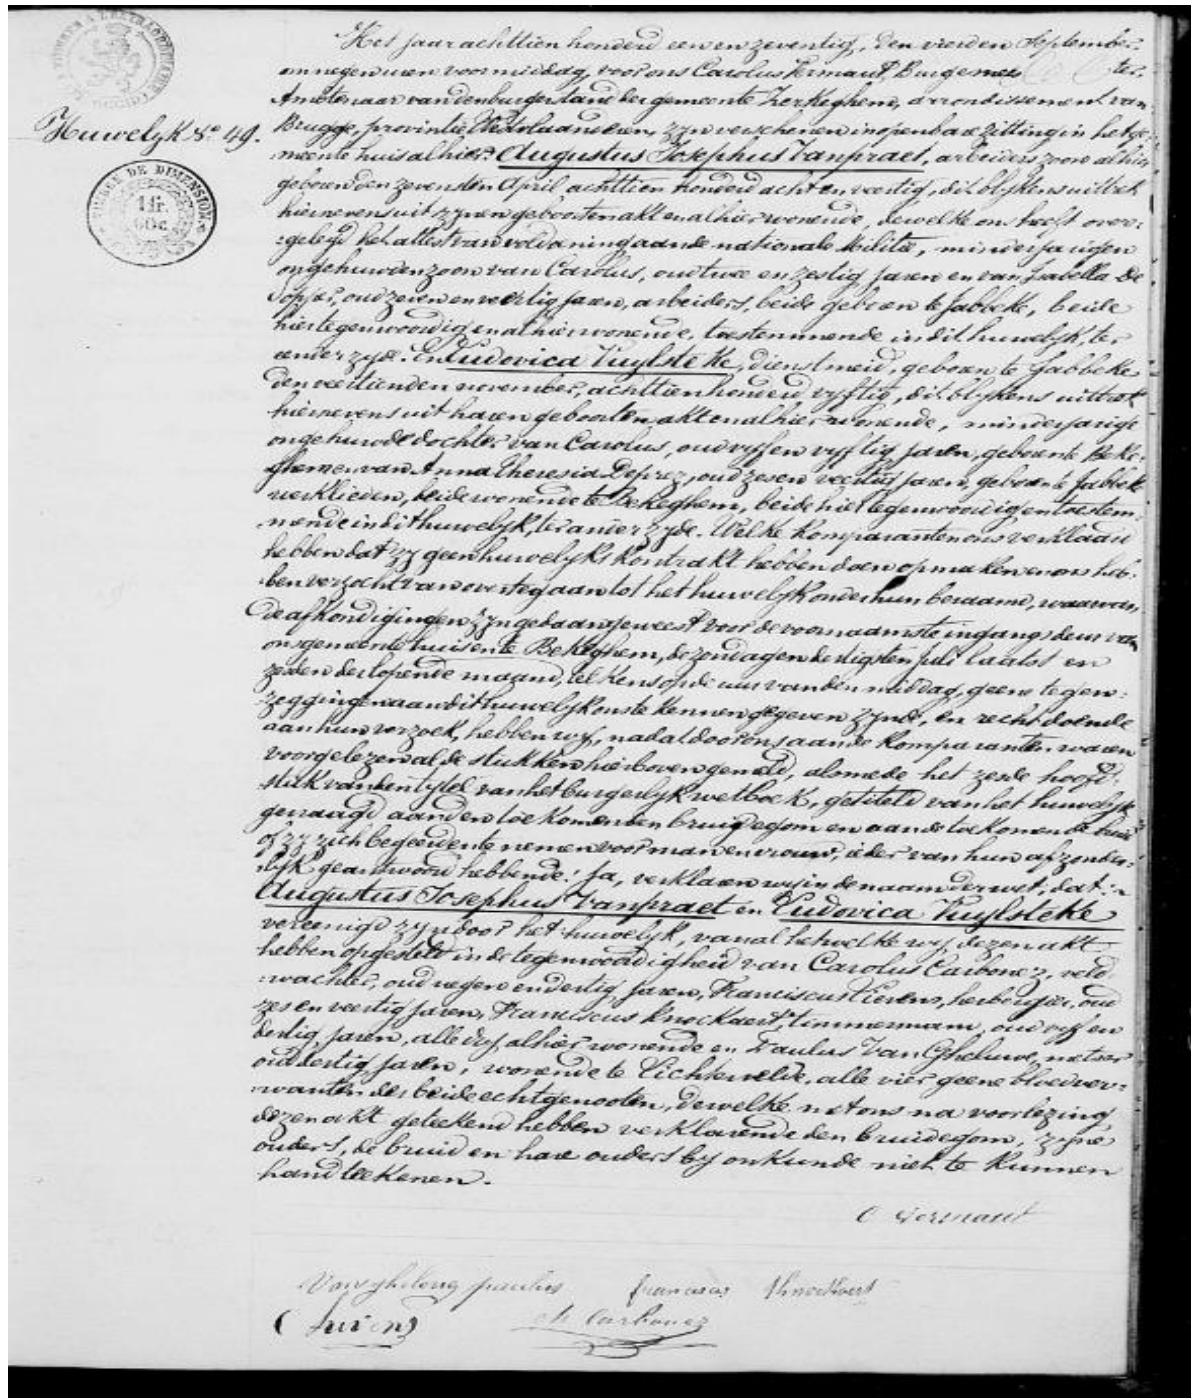 Huwelyk No 49.
TIMBRE DE DIMENSION
1 fr.
60 c.
Het jaar achttien honderd een en zeventig, den vierden September
om negen uren voormiddag, voor ons Carolus Vermaut, Burgemeester
Amotenaar van den burgerstand der gemeente Zerkeghem, arrondissement van
Brugge, provintie Westvlaanderen, zyn verschenen in openbare zitting in het ge-
meente huis alhier: Augustus Josephus Vanpraet, arbeiders zoon alhier
geboren den zevensten April achttien honderd acht en veertig, dit blykens uittrek
hiernevens uit zynen geboorten akt en alhier wonende, dewelke ons heeft over-
gelegd het attest van voldoening aan de nationale Militie, minderjarigen
ongehuwden zoon van Carolus, oud twee en zestig jaren en van Isabella De
oud zeven en veertig jaren, arbeiders, beide geboren te Jabbeke, beide
hier tegenwoordig en alhier wonende, toestemmende in dit huwelyk, ter
eender zyde. En Ludovica Vuylsteke, dienstmeid, geboren te Jabbeke
den veertienden november, achttien honderd vyftig, dit blykens uittrek
hiernevens uit haren geboorten akt en alhier wonende, minderjarige
ongehuwde dochter van Carolus, oud vyf en vyftig jaren, geboren te Beke-
ghem en van Anna Theresia Deprez, oud zes en veertig jaren, geboren te Jabbeke
werklieden, beide wonende te Bekeghem, beide hier tegenwoordig en toestem-
mende in dit huwelyk, ter ander zyde. Welke komparanten ons verklaard
hebben dat zy geen huwelyks kontrakt hebben doen opmaken en ons heb-
ben verzocht van over te gaan tot het huwelyk onder hun beraamd, waarvan
de afkondigingen zyn gedaan geweest voor de voornaamste ingangsdeur van
ons gemeente huis en te Bekeghem, de zondagen dertigsten juli laatst en
zesden der lopende maand, telkens op de uur van den middag, geene tegen-
zeggingen aan dit huwelyk ons te kennen gegeven zynde, en recht doende
aan hun verzoek, hebben wy, nadat door ons aan de komparanten waren
voorgelezen al de stukken hierboven gemeld, alsmede het zesde hoofd-
stuk van den tytel van het burgerlyk wetboek, getiteld van het huwelyk
gevraagd aan den toekomenden bruidegom en aan de toekomende bruid
of zy zich begeerden te nemen voor man en vrouw, ieder van hun afzonder-
lyk geantwoord hebbende: Ja, verklaren wy in de naam der wet, dat:
Augustus Josephus Vanpraet en Ludovica Vuylsteke
vereenigd zyn door het huwelyk, van al hetwelke wy dezen akt
hebben opgesteld in de tegenwoordigheid van Carolus Carbonez, veld-
wachter, oud negen en dertig jaren, Franciscus Lievens, herbergier, oud
zes en veertig jaren, Franciscus Knockaert, timmerman, oud vyf en
dertig jaren, alle dry alhier wonende en Paulus Van Gheluwe, metser
oud dertig jaren, wonende te Lichtervelde, alle vier geene bloedver-
wanten der beide echtgenooten, dewelke met ons na voorlezing
dezen akt geteekend hebben verklarende den bruidegom, zyne
ouders, de bruid en hare ouders by onkunde niet te kunnen
handteekenen.
C Vermaut
Vanghelewe paulus franciscus Knockaert
Lievens Ch Carbonez